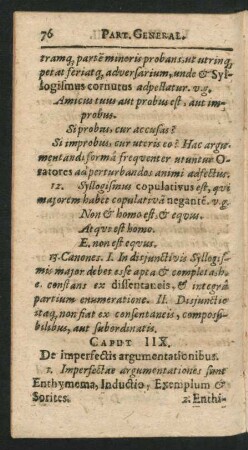 76 PART. GENERAL.
tramq, partē minoris probans, ut utrinq,
petat feriatq, adversarium, unde & Syl-
logismus cornutus adpellatur. v.g.
Amicus tuus aut probus est, aut im-
probus.
Si probus, cur accusas?
Si improbus, cur uteris eo? Hac argu-
mentandi formâ frequenter utuntur O-
ratores ad perturbandos animi adfectus.
12. Syllogismus copulativus est, qui
majorem habet copulativā negantē. v.g.
Non & homo est, & eqvus.
Atqvo est homo.
E. non est eqvus.
13. Canones. I. In disjunctivis Syllogis-
mis major debet esse apta & completa, h.
e. constans ex dissentaneis, & integrâ
partium enumeratione. II. Disjunctio
itaq, non fiat ex consentaneis, compossi-
bilibus, aut subordinatis.
CAPUT IIX.
De imperfectis argumentationibus.
1. Imperfectae argumentationes sunt
Enthymema, Inductio, Exemplum &
Sorites. 2. Enthi-